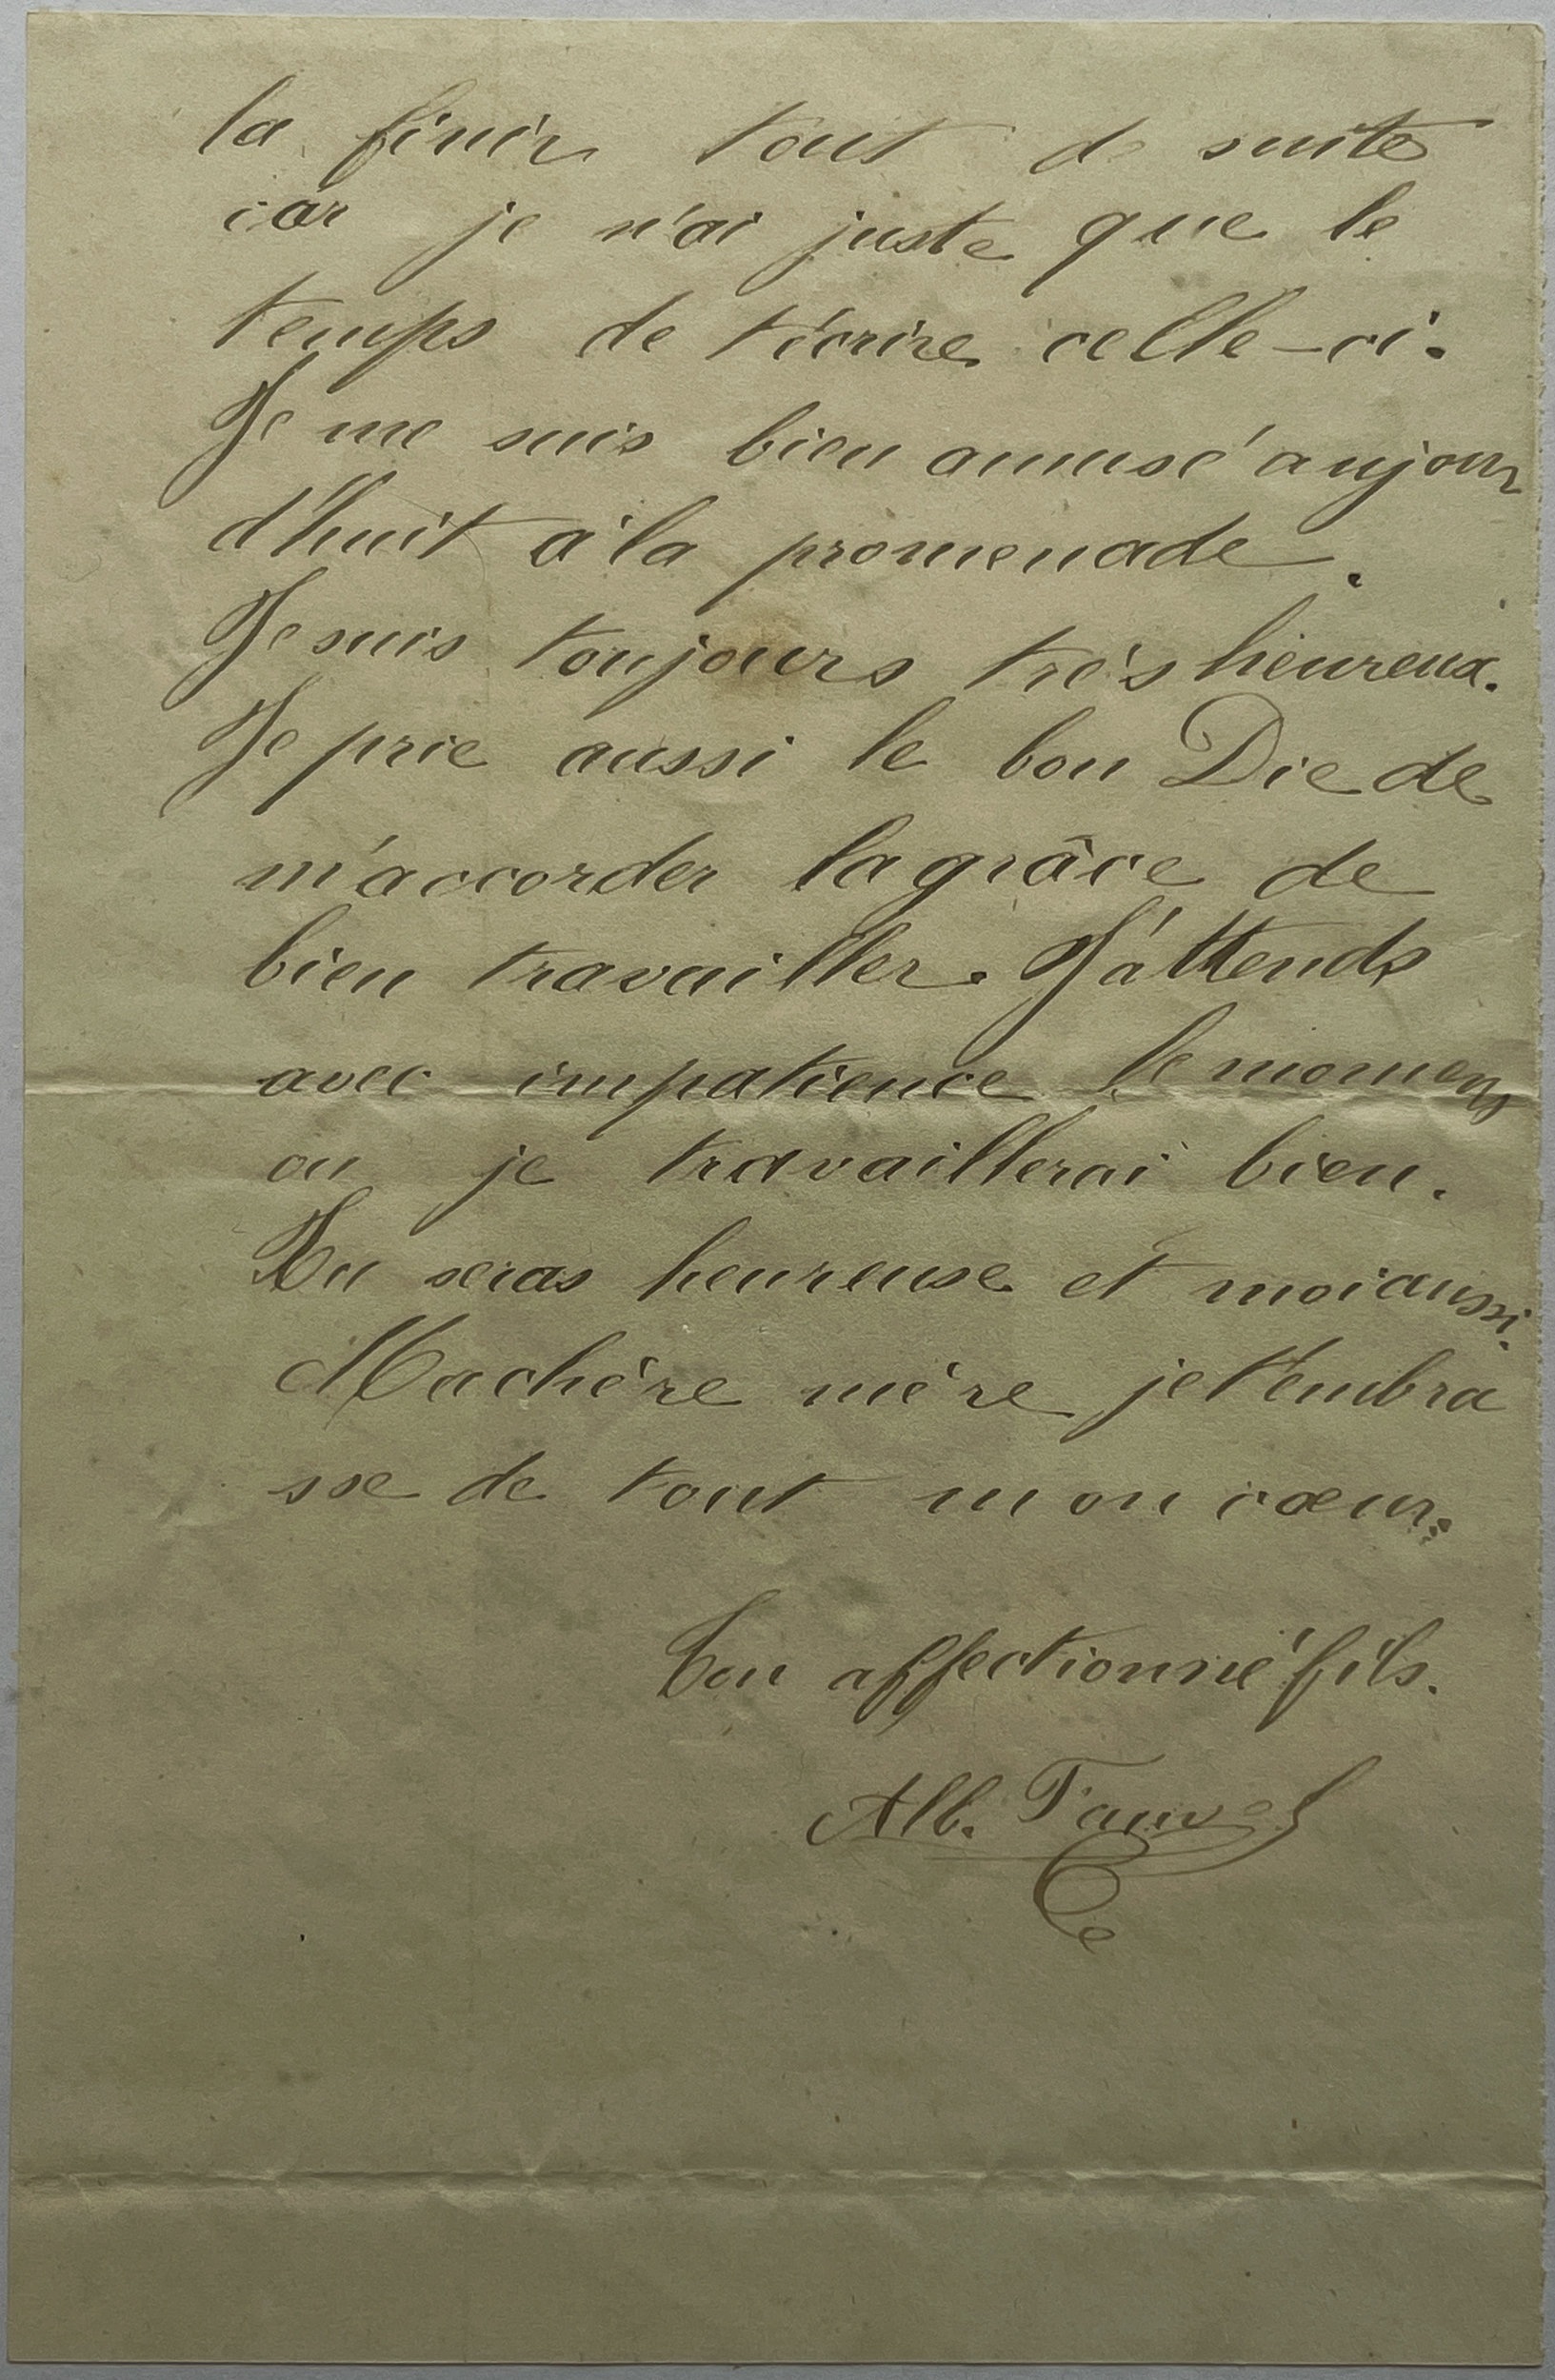 la finir tout de suite
car je n'ai juste que le
temps de t'écrire celle-ci.
Je me suis bien amusé aujour
d'huit à la promenade.
Je suis toujours très heureux.
Je prie aussi le bon Die de
m'accorder la grâce de
bien travailler. J'attends
avec impatience le moment
ou je travaillerai bien.
Tu seras heureuse et moi aussi.
Ma chère mère je t'embra
sse de tout mon cœur.
Ton affectionné fils.
Alb. Fauvel